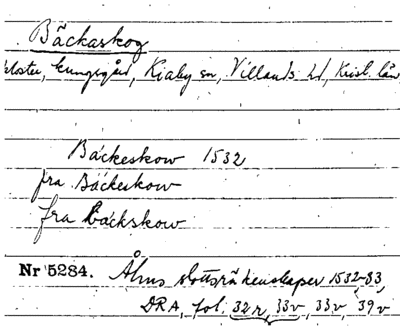 Bäckaskog
kloster, kungsgård, Kiaby sn, Villands hd, Krist. län
Bäckeskow 1532
fra Bäckeskow
fra Bäckskow
Nr 5284. Åhus slottsräkenskaper 1532-33,
DRA, fol. 32 r, 33v, 33v, 39v